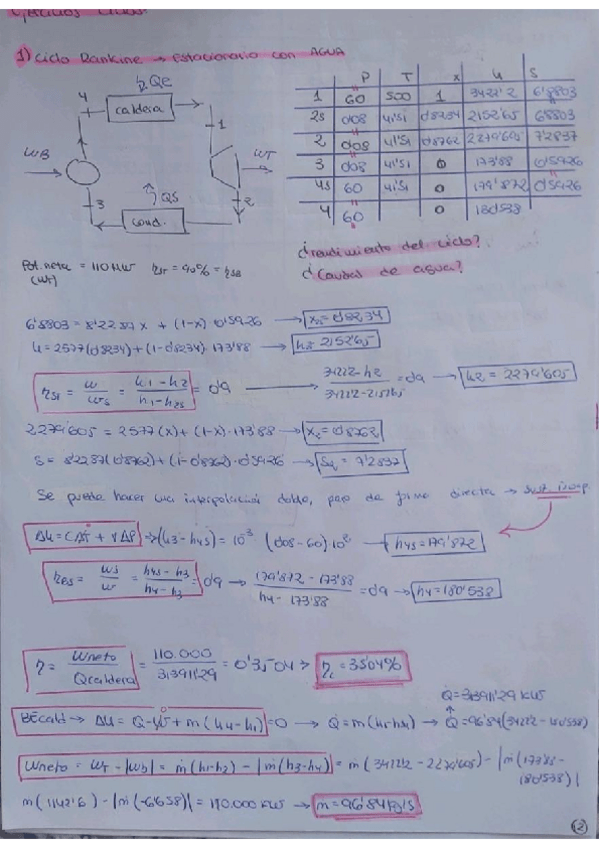 Ejercicios Ciclos:
1) Ciclo Rankine → estacionario con AGUA
P T x h s
1 60 500 1 3422'2 6'8803
2s 0'08 41'51 0'8234 2152'65 6'8803
2 0'08 41'51 0'8762 2279'605 7'2837
3 0'08 41'51 0 173'88 0'5926
4s 60 41'51 0 179'872 0'5926
4 60 0 180'538
4 Qe
caldera
1
WB WT
QS
3 2
cond.
¿rendimiento del ciclo?
¿Caudal de agua?
Pot. neta = 110 MW ηST = 90% = ηSB
(WT)
6'8803 = 8'2287 x + (1-x) 0'5926 → x2s = 0'8234
h = 2577(0'8234) + (1-0'8234) 173'88 → h2s = 2152'65
ηST = W/Ws = (h1-h2)/(h1-h2s) = 0'9 → (3422'2-h2)/(3422'2-2152'65) = 0'9 → h2 = 2279'605
2279'605 = 2577(x) + (1-x)·173'88 → x2 = 0'8762
S = 8'2287(0'8762) + (1-0'8762)·0'5926 → S2 = 7'2837
Se puede hacer una interpolación doble, pero de forma directa → sust incomp.
Δh = CΔT + VΔP → (h3-h4s) = 10⁻³ (0'08-60) 10² → h4s = 179'872
ηBS = Ws/W = (h4s-h3)/(h4-h3) = 0'9 → (179'872-173'88)/(h4-173'88) = 0'9 → h4 = 180'538
η = Wneto/Qcaldera = 110.000/313911'29 = 0'3504 → η = 35'04%
Q = 313911'29 kW
BECald → ΔU = Q-W + m(h4-h1) = 0 → Q = m(h1-h4) → Q = 96'84(3422'2-180'538)
Wneto = WT - |WB| = m(h1-h2) - |m(h3-h4)| = m(3422'2-2279'605) - |m(173'88-
180'538)|
m(1142'6) - |m(-6'658)| = 110.000 kW → m = 96'84 kg/s
2